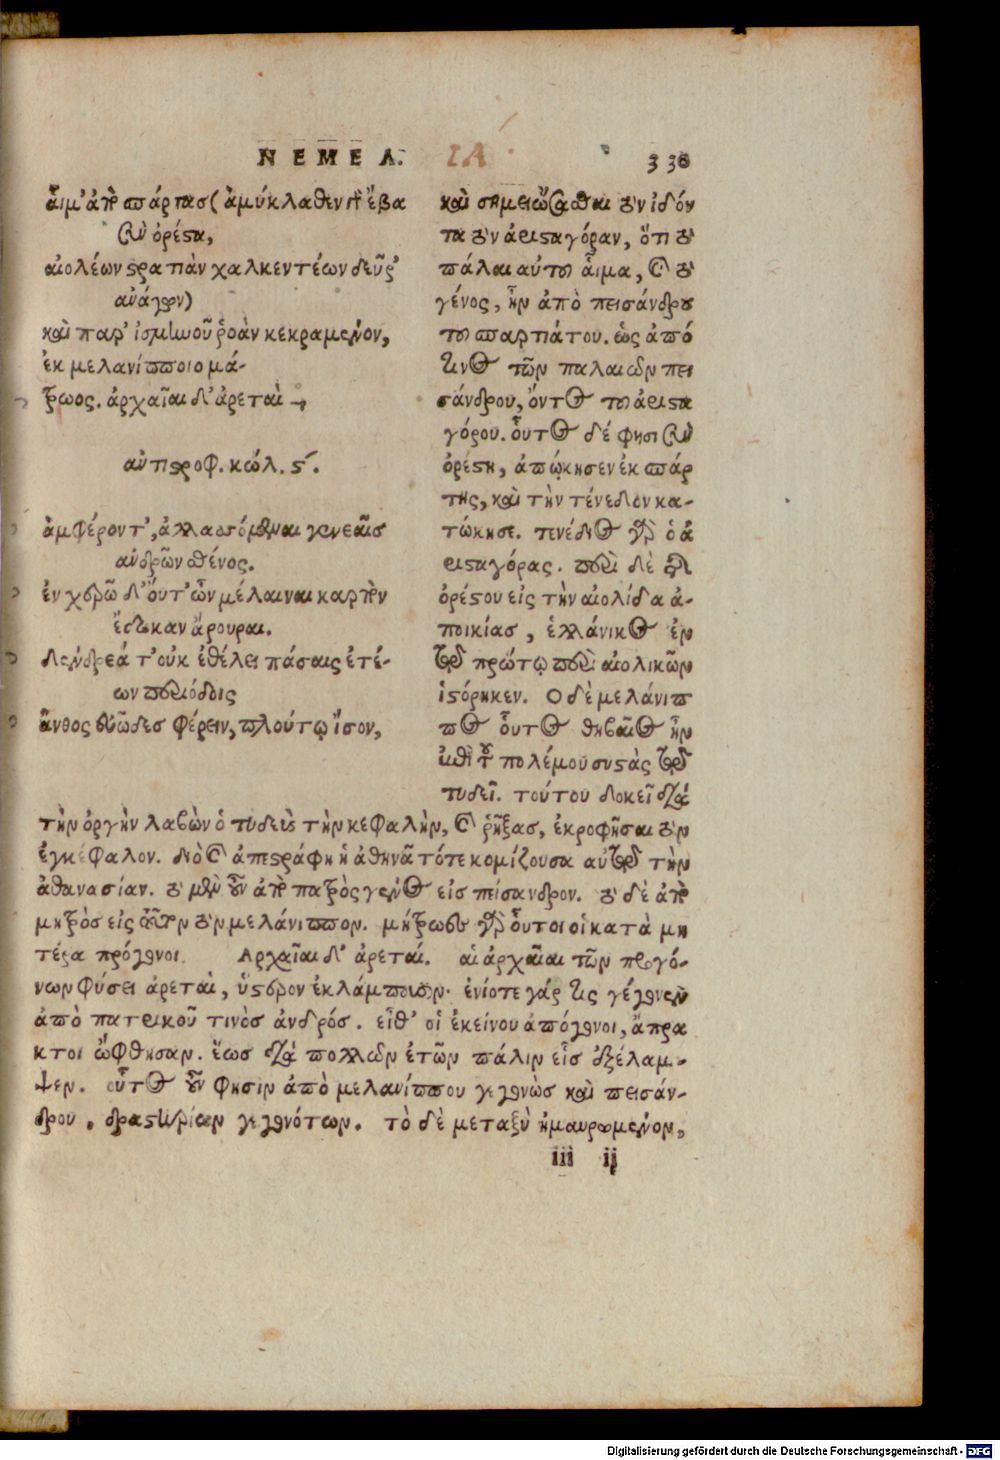 ΝΕΜΕΑ. ΙΑ 330
αἷμ' ἀπὸ σπάρτας( ἀμύκλαθεν γὰρ ἔβα
σὺν ὀρέστα,
αἰολέων στρατιὰν χαλκεντέων δεῦρ'
ἀνάγων)
καὶ παρ' ἰσμηνοῦ ῥοὰν κεκραμένον,
ἐκ μελανίπποιο μά-
τρωος. ἀρχαῖαι δ' ἀρεταὶ
ἀντιστροφ. κώλ. ϛ'.
ἀμφέροντ', ἀλλασσόμεναι γενεαῖς
ἀνδρῶν σθένος.
ἐν χερῷ δ' οὔτ' ὦν μέλαιναι καρπὸν
ἔδωκαν ἄρουραι.
δένδρεά τ' οὐκ ἐθέλει πάσαις ἐτέ-
ων περιόδοις
ἄνθος εὐῶδες φέρειν, πλούτῳ ἴσον,
καὶ σημειώσασθαι τὸν ἰδόν
τα τὸν ἀρισταγόραν, ὅτι τὸ
πάλαι αὐτοῦ αἷμα, καὶ τὸ
γένος, ἦν ἀπὸ πεισάνδρου
τοῦ σπαρτιάτου. ὡς ἀπό
τινος τῶν παλαιῶν πει
σάνδρου, ὄντος τοῦ ἀριστα
γόρου. οὗτος δέ φησι σὺν
ὀρέστῃ, ἀπῴκησεν ἐκ σπάρ
της, καὶ τὴν τένεδον κα-
τῴκησε. τενέδιος γὰρ ὁ ἀ
ρισταγόρας. περὶ δὲ τῆς
ὀρέστου εἰς τὴν αἰολίδα ἀ-
ποικίας, ἑλλάνικος ἐν
τῷ πρώτῳ περὶ αἰολικῶν
ἱστόρηκεν. Ο δὲ μελάνιπ
πος οὗτος θηβαῖος ἦν
ἐπὶ τοῦ πολέμου συστὰς τῷ
τυδεῖ. τούτου δοκεῖ διὰ
τὴν ὀργὴν λαβὼν ὁ τυδεὺς τὴν κεφαλὴν, καὶ ῥήξας, ἐκροφῆσαι τὸν
ἐγκέφαλον. διὸ καὶ ἀπεστράφη ἡ ἀθηνᾶ τότε κομίζουσα αὐτῷ τὴν
ἀθανασίαν. τὸ μὲν οὖν ἀπὸ πατρὸς γένος εἰς πείσανδρον. τὸ δὲ ἀπὸ
μητρὸς εἰς αὐτὸν τὸν μελάνιππον. μήτρωες γὰρ οὗτοι οἱ κατὰ μη
τέρα πρόγονοι. Αρχαῖαι δ' ἀρεταί. αἱ ἀρχαῖαι τῶν προγό-
νων φύσει ἀρεταὶ, ὕστερον ἐκλάμπουσιν. ἐνίοτε γάρ τις γέγονεν
ἀπὸ πατρικοῦ τινὸς ἀνδρός. εἶθ' οἱ ἐκείνου ἀπόγονοι, ἄπρα
κτοι ὤφθησαν. ἕως διὰ πολλῶν ἐτῶν πάλιν εἷς ἐξέλαμ-
ψεν. οὗτος οὖν φησιν ἀπὸ μελανίππου γεγονὼς καὶ πεισάν-
δρου. δραστηρίων γεγονότων. τὸ δὲ μεταξὺ ἠμαυρωμένον,
iii ij
Digitalisierung gefördert durch die Deutsche Forschungsgemeinschaft - DFG